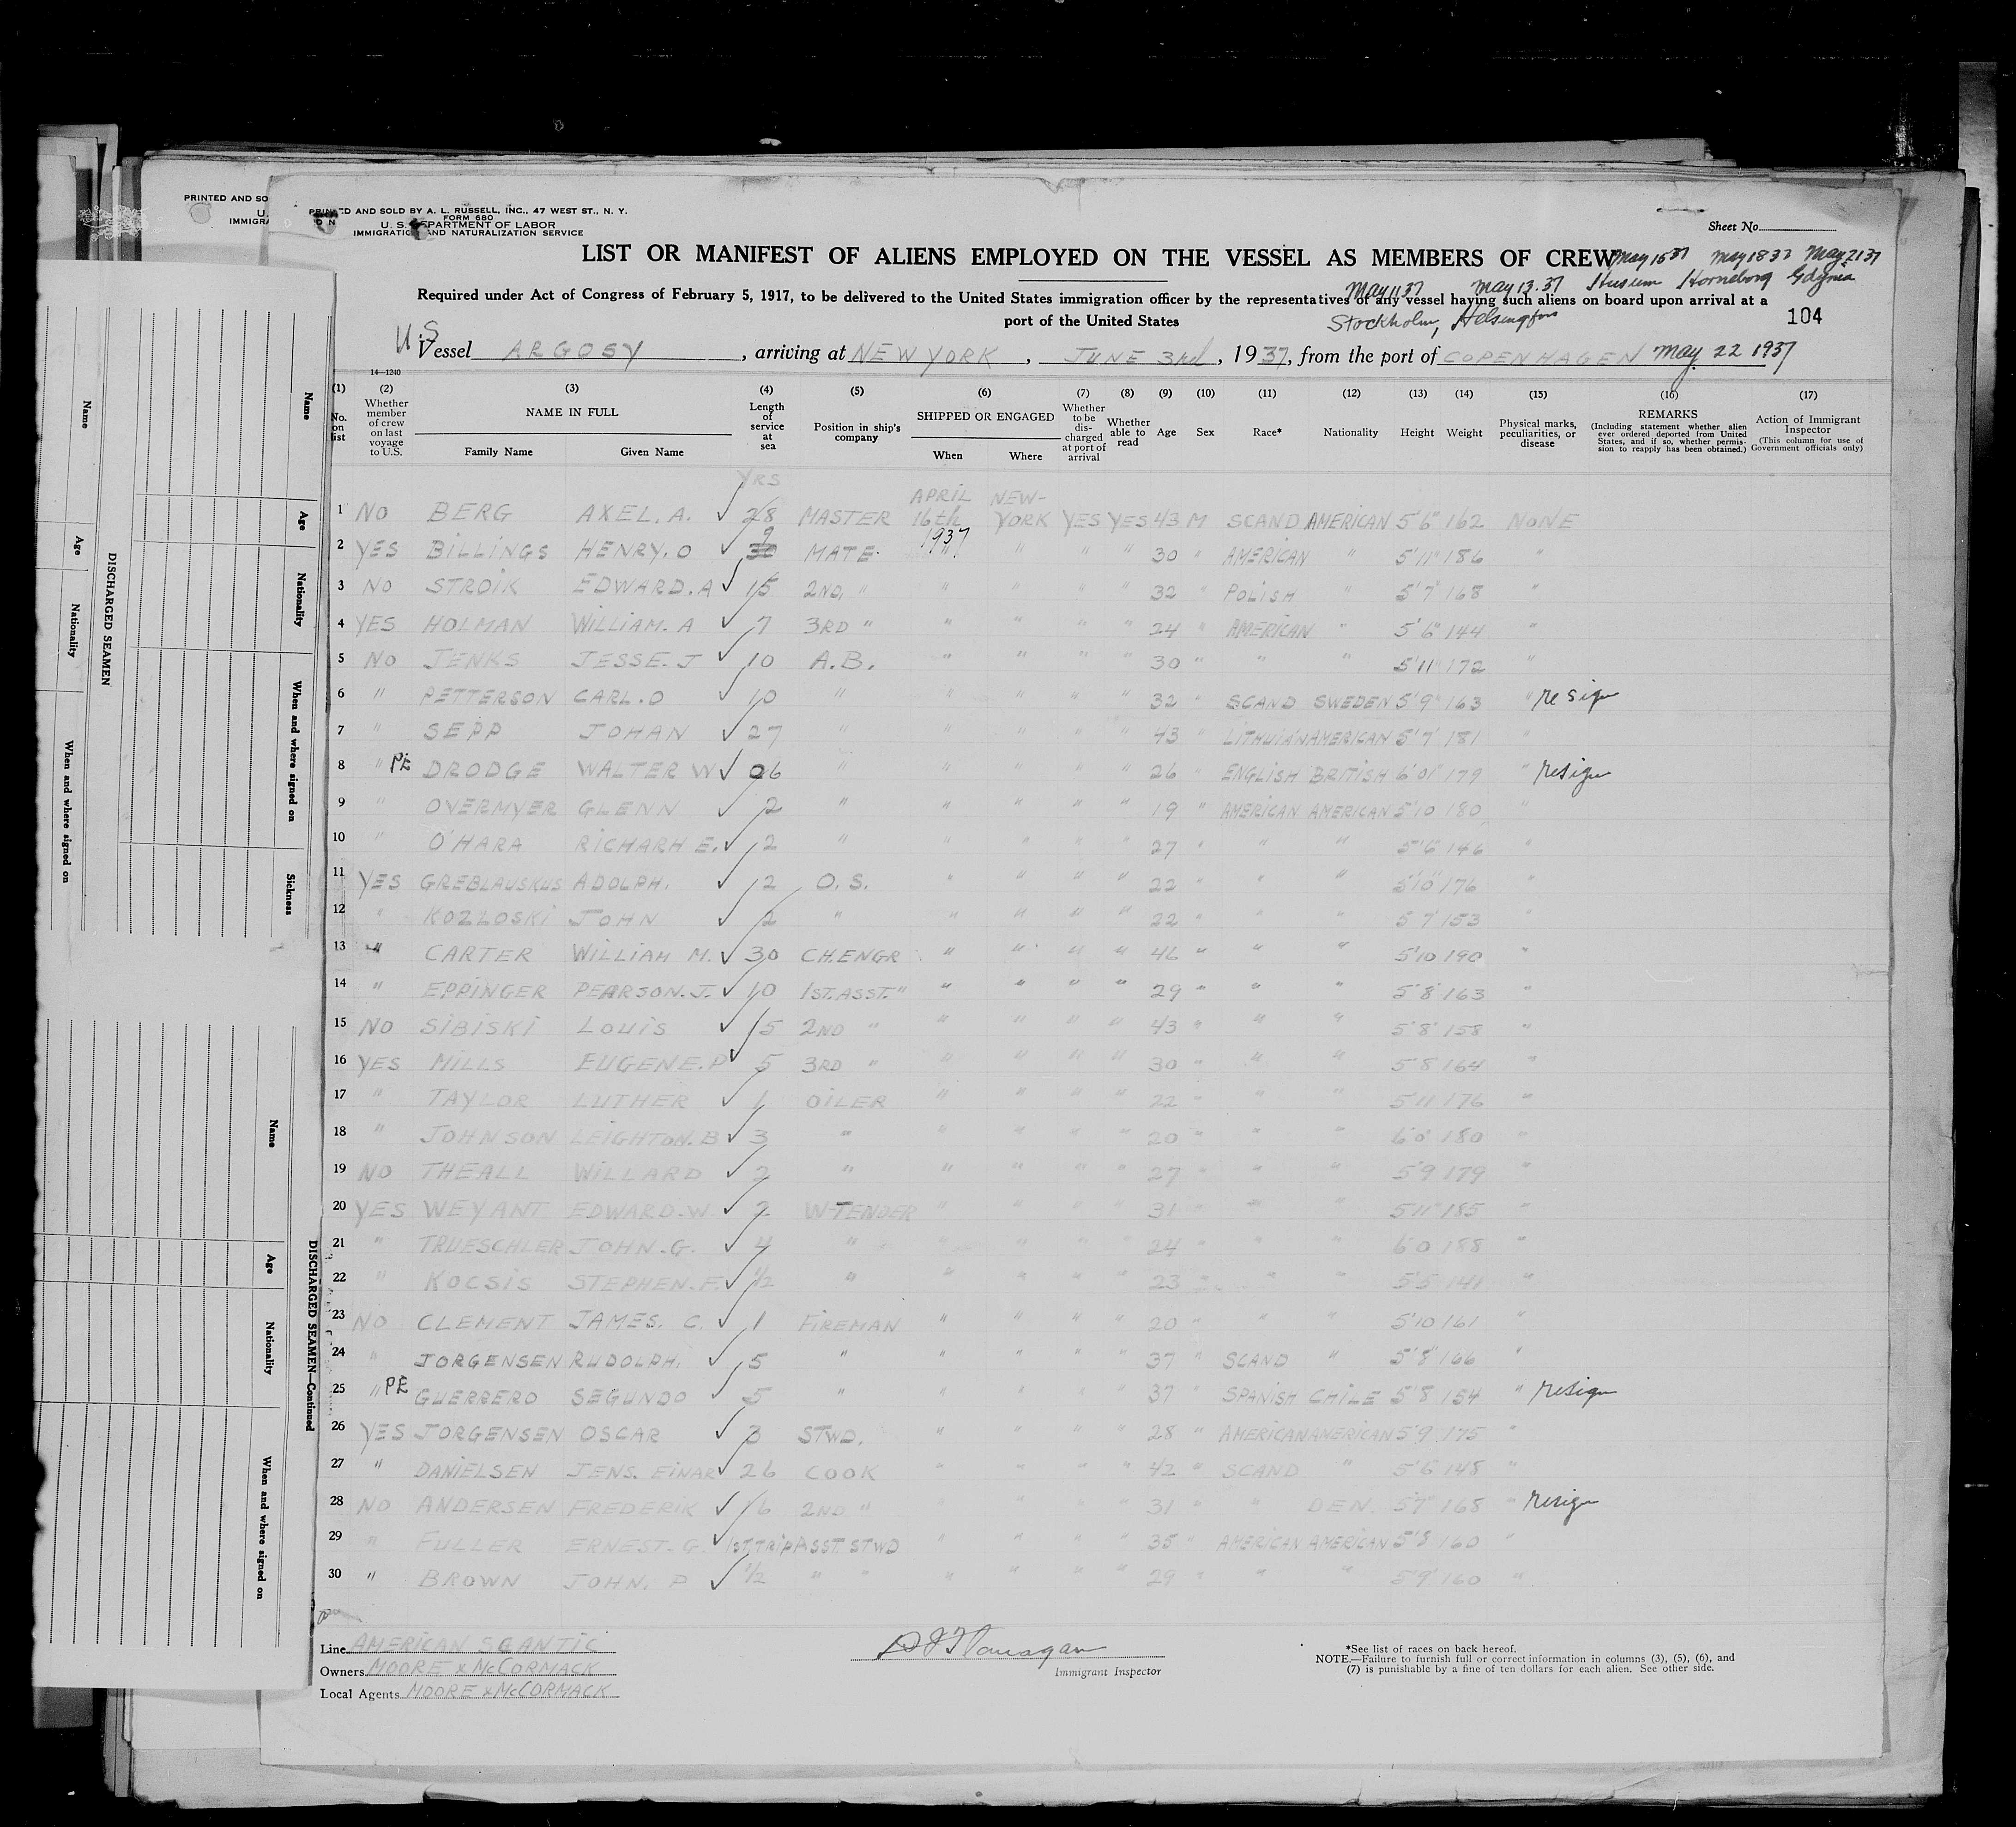 PRINTED AND SO
U.
IMMIGRA
PRINTED AND SOLD BY A. L. RUSSELL, INC., 47 WEST ST., N. Y.
FORM 680
U. S. DEPARTMENT OF LABOR
IMMIGRATION AND NATURALIZATION SERVICE
Sheet No.
LIST OR MANIFEST OF ALIENS EMPLOYED ON THE VESSEL AS MEMBERS OF CREW
May 16 37 May 18 37 May 21 37
Required under Act of Congress of February 5, 1917, to be delivered to the United States immigration officer by the representatives of any vessel having such aliens on board upon arrival at a
port of the United States
May 11 37 May 13. 37 Husum Horneborg Gdynia
Stockholm, Helsingfors
104
U.S.
Vessel ARGOSY, arriving at NEW YORK, JUNE 3rd, 1937, from the port of COPENHAGEN May 22 1937
14—1240
(1) (2) (3) (4) (5) (6) (7) (8) (9) (10) (11) (12) (13) (14) (15) (16) (17)
No. on list
Whether member of crew on last voyage to U.S.
NAME IN FULL
Family Name Given Name
Length of service at sea
Position in ship's company
SHIPPED OR ENGAGED
When Where
Whether to be discharged at port of arrival
Whether able to read
Age
Sex
Race*
Nationality
Height
Weight
Physical marks, peculiarities, or disease
REMARKS
(Including statement whether alien ever ordered deported from United States, and if so, whether permission to reapply has been obtained.)
Action of Immigrant Inspector
(This column for use of Government officials only)
YRS
1 NO BERG AXEL. A. ✓ 28 MASTER APRIL 16th 1937 NEW-YORK YES YES 43 M SCAND AMERICAN 5'6" 162 NONE
2 YES BILLINGS HENRY. O ✓ 9 MATE " " " " 30 " AMERICAN " 5'11" 186 "
3 NO STROIK EDWARD. A ✓ 15 2ND. " " " " " 32 " POLISH " 5'7" 168 "
4 YES HOLMAN WILLIAM. A ✓ 7 3RD " " " " " 24 " AMERICAN " 5'6" 144 "
5 NO JENKS JESSE. J ✓ 10 A.B. " " " " 30 " " " 5'11" 172 "
6 " PETTERSON CARL. O ✓ 10 " " " " " 32 " SCAND SWEDEN 5'9" 163 " resign
7 " SEPP JOHAN ✓ 27 " " " " " 43 " LITHUIAN AMERICAN 5'7" 181 "
8 " PE DRODGE WALTER W ✓ 06 " " " " " 26 " ENGLISH BRITISH 6'01" 179 " resign
9 " OVERMYER GLENN ✓ 2 " " " " " 19 " AMERICAN AMERICAN 5'10 180 "
10 " O'HARA RICHARH E. ✓ 2 " " " " " 27 " " " 5'6" 146 "
11 YES GREBLAUSKUS ADOLPH. ✓ 2 O.S. " " " " 22 " " " 5'10" 176 "
12 " KOZLOSKI JOHN ✓ 2 " " " " " 22 " " " 5'7" 153 "
13 " CARTER WILLIAM M. ✓ 30 CH.ENGR " " " " 46 " " " 5'10 190 "
14 " EPPINGER PEARSON. J. ✓ 10 1ST. ASST. " " " " " 29 " " " 5'8" 163 "
15 NO SIBISKI LOUIS ✓ 15 2ND " " " " " 43 " " " 5'8" 158 "
16 YES MILLS EUGENE. P ✓ 5 3RD " " " " " 30 " " " 5'8 164 "
17 " TAYLOR LUTHER ✓ 1 OILER " " " " 22 " " " 5'11 176 "
18 " JOHNSON LEIGHTON. B ✓ 3 " " " " " 20 " " " 6'0" 180 "
19 NO THEALL WILLARD ✓ 2 " " " " " 27 " " " 5'9 179 "
20 YES WEYANT EDWARD. W ✓ 2 W-TENDER " " " " 31 " " " 5'11" 185 "
21 " TRUESCHLER JOHN. G. ✓ 4 " " " " " 24 " " " 6'0 188 "
22 " KOCSIS STEPHEN. F. ✓ 1/2 " " " " " 23 " " " 5'5 141 "
23 NO CLEMENT JAMES. C. ✓ 1 FIREMAN " " " " 20 " " " 5'10 161 "
24 " JORGENSEN RUDOLPH. ✓ 5 " " " " " 37 " SCAND " 5'8" 166 "
25 " PE GUERRERO SEGUNDO ✓ 5 " " " " " 37 " SPANISH CHILE 5'8 154 " resign
26 YES JORGENSEN OSCAR ✓ 3 STWD. " " " " 28 " AMERICAN AMERICAN 5'9 175 "
27 " DANIELSEN JENS. EINAR ✓ 26 COOK " " " " 42 " SCAND " 5'6 148 "
28 NO ANDERSEN FREDERIK ✓ 16 2ND " " " " " 31 " " DEN. 5'7" 168 " resign
29 " FULLER ERNEST. G. ✓ 1ST. TRIP ASST. STWD " " " " 35 " AMERICAN AMERICAN 5'8 160 "
30 " BROWN JOHN. P ✓ 1/2 " " " " " " 29 " " " 5'9" 160 "
Line AMERICAN SCANTIC
Owners MOORE & McCORMACK
Local Agents MOORE & McCORMACK
Flanagan
Immigrant Inspector
*See list of races on back hereof.
NOTE.—Failure to furnish full or correct information in columns (3), (5), (6), and
(7) is punishable by a fine of ten dollars for each alien. See other side.
DISCHARGED SEAMEN
Name
Age
Nationality
When and where signed on
Name
Age
Nationality
When and where signed on
Sickness
DISCHARGED SEAMEN—Continued
Name
Age
Nationality
When and where signed on